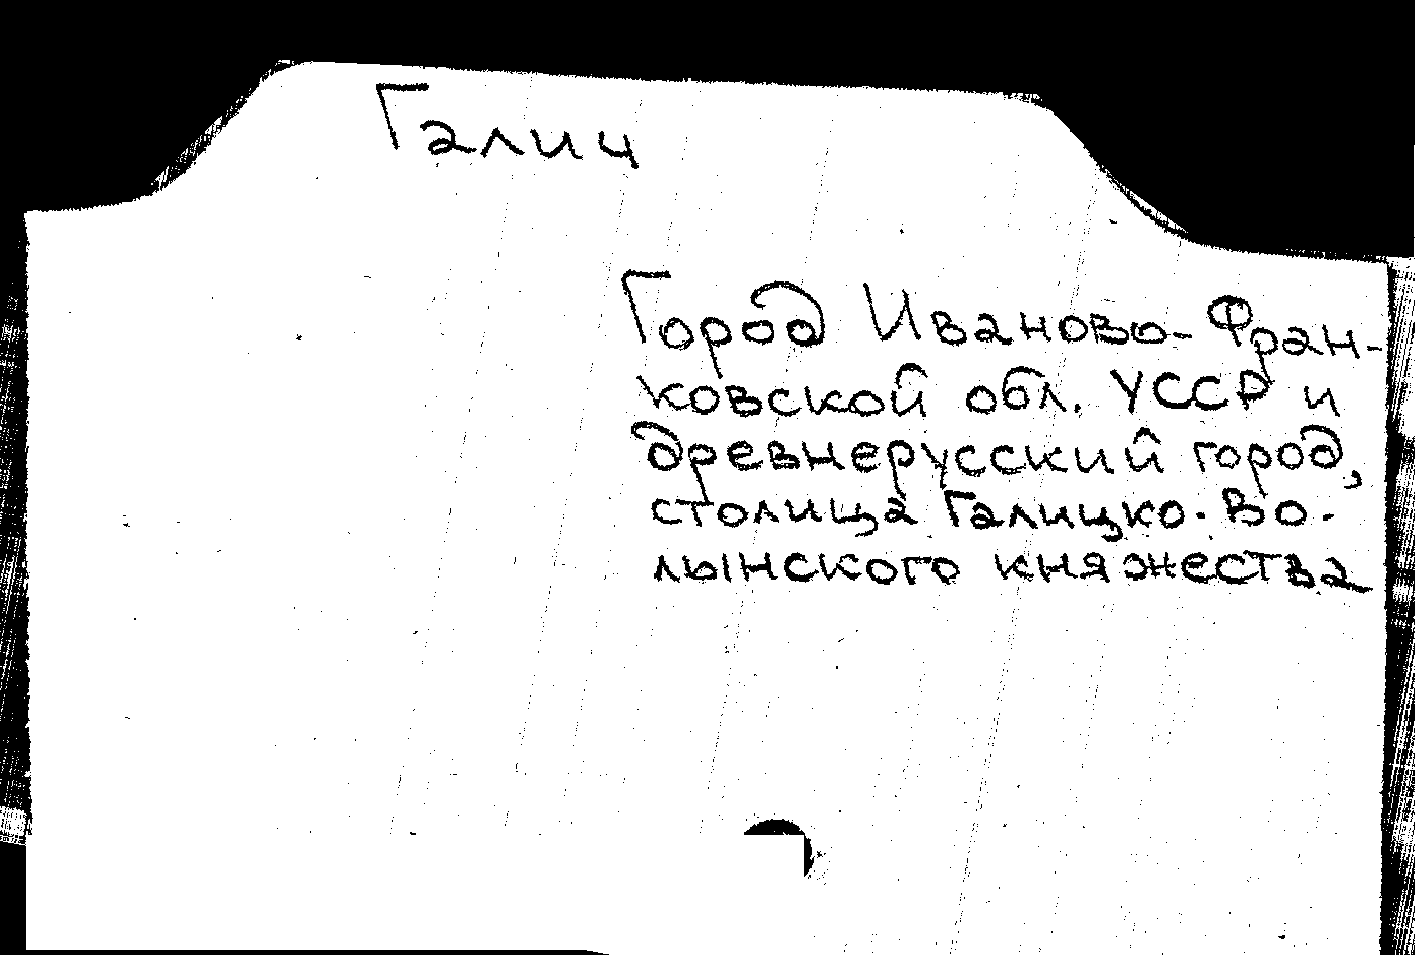 Галич
Город Иваново-Фран-
ковской обл. УССР и
древнерусский город,
столица Галицко-Во-
лынского княжества